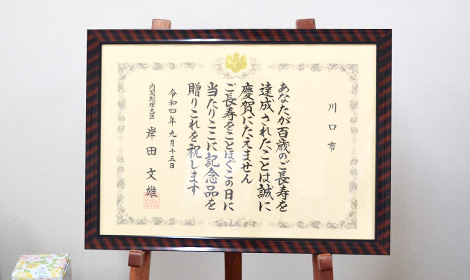 川口市
あなたが百歳のご長寿を
達成されたことは誠に
慶賀にたえません
ご長寿をことほぐこの日に
当たりここに記念品を
贈りこれを祝します
令和四年九月十五日
内閣総理大臣 岸田文雄